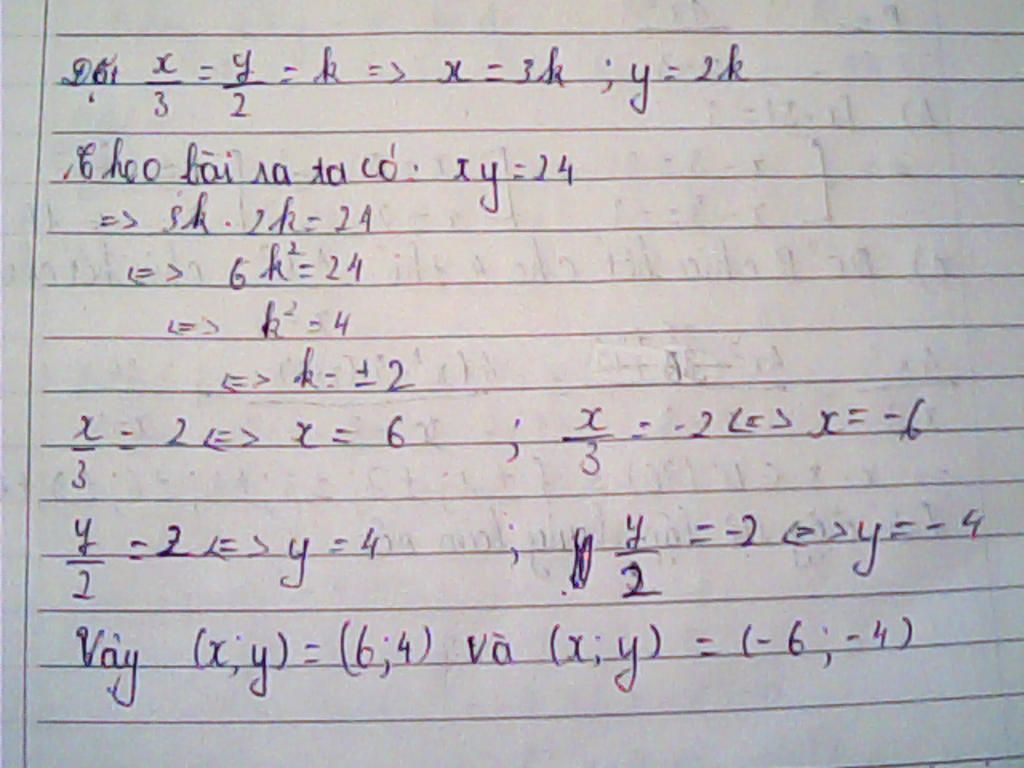 Đặt x/3 = y/2 = k => x = 3k ; y = 2k
Theo bài ra ta có: xy = 24
=> 3k . 2k = 24
<=> 6k² = 24
<=> k² = 4
<=> k = ±2
x/3 = 2 <=> x = 6 ; x/3 = -2 <=> x = -6
y/2 = 2 <=> y = 4 ; y/2 = -2 <=> y = -4
Vậy (x;y) = (6;4) và (x;y) = (-6;-4)